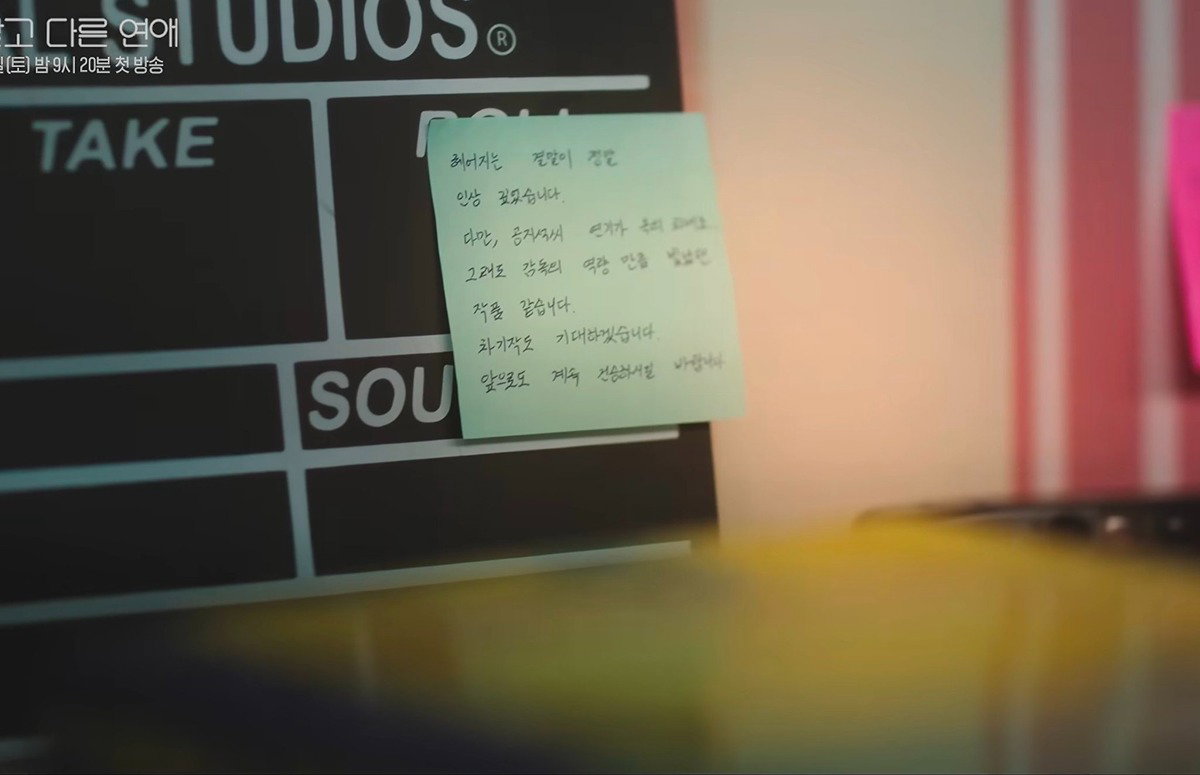 고 다른 연애
(토) 밤 9시 20분 첫 방송
STUDIOS®
TAKE
헤어지는 결말이 정말
인상 깊었습니다.
다만, 공지설씨 연기가 옥의
그래도 감독의 역량 만큼
작품 같습니다.
차기작도 기대하겠습니다.
앞으로도 계속 건승하시길 바랍니다
SOU